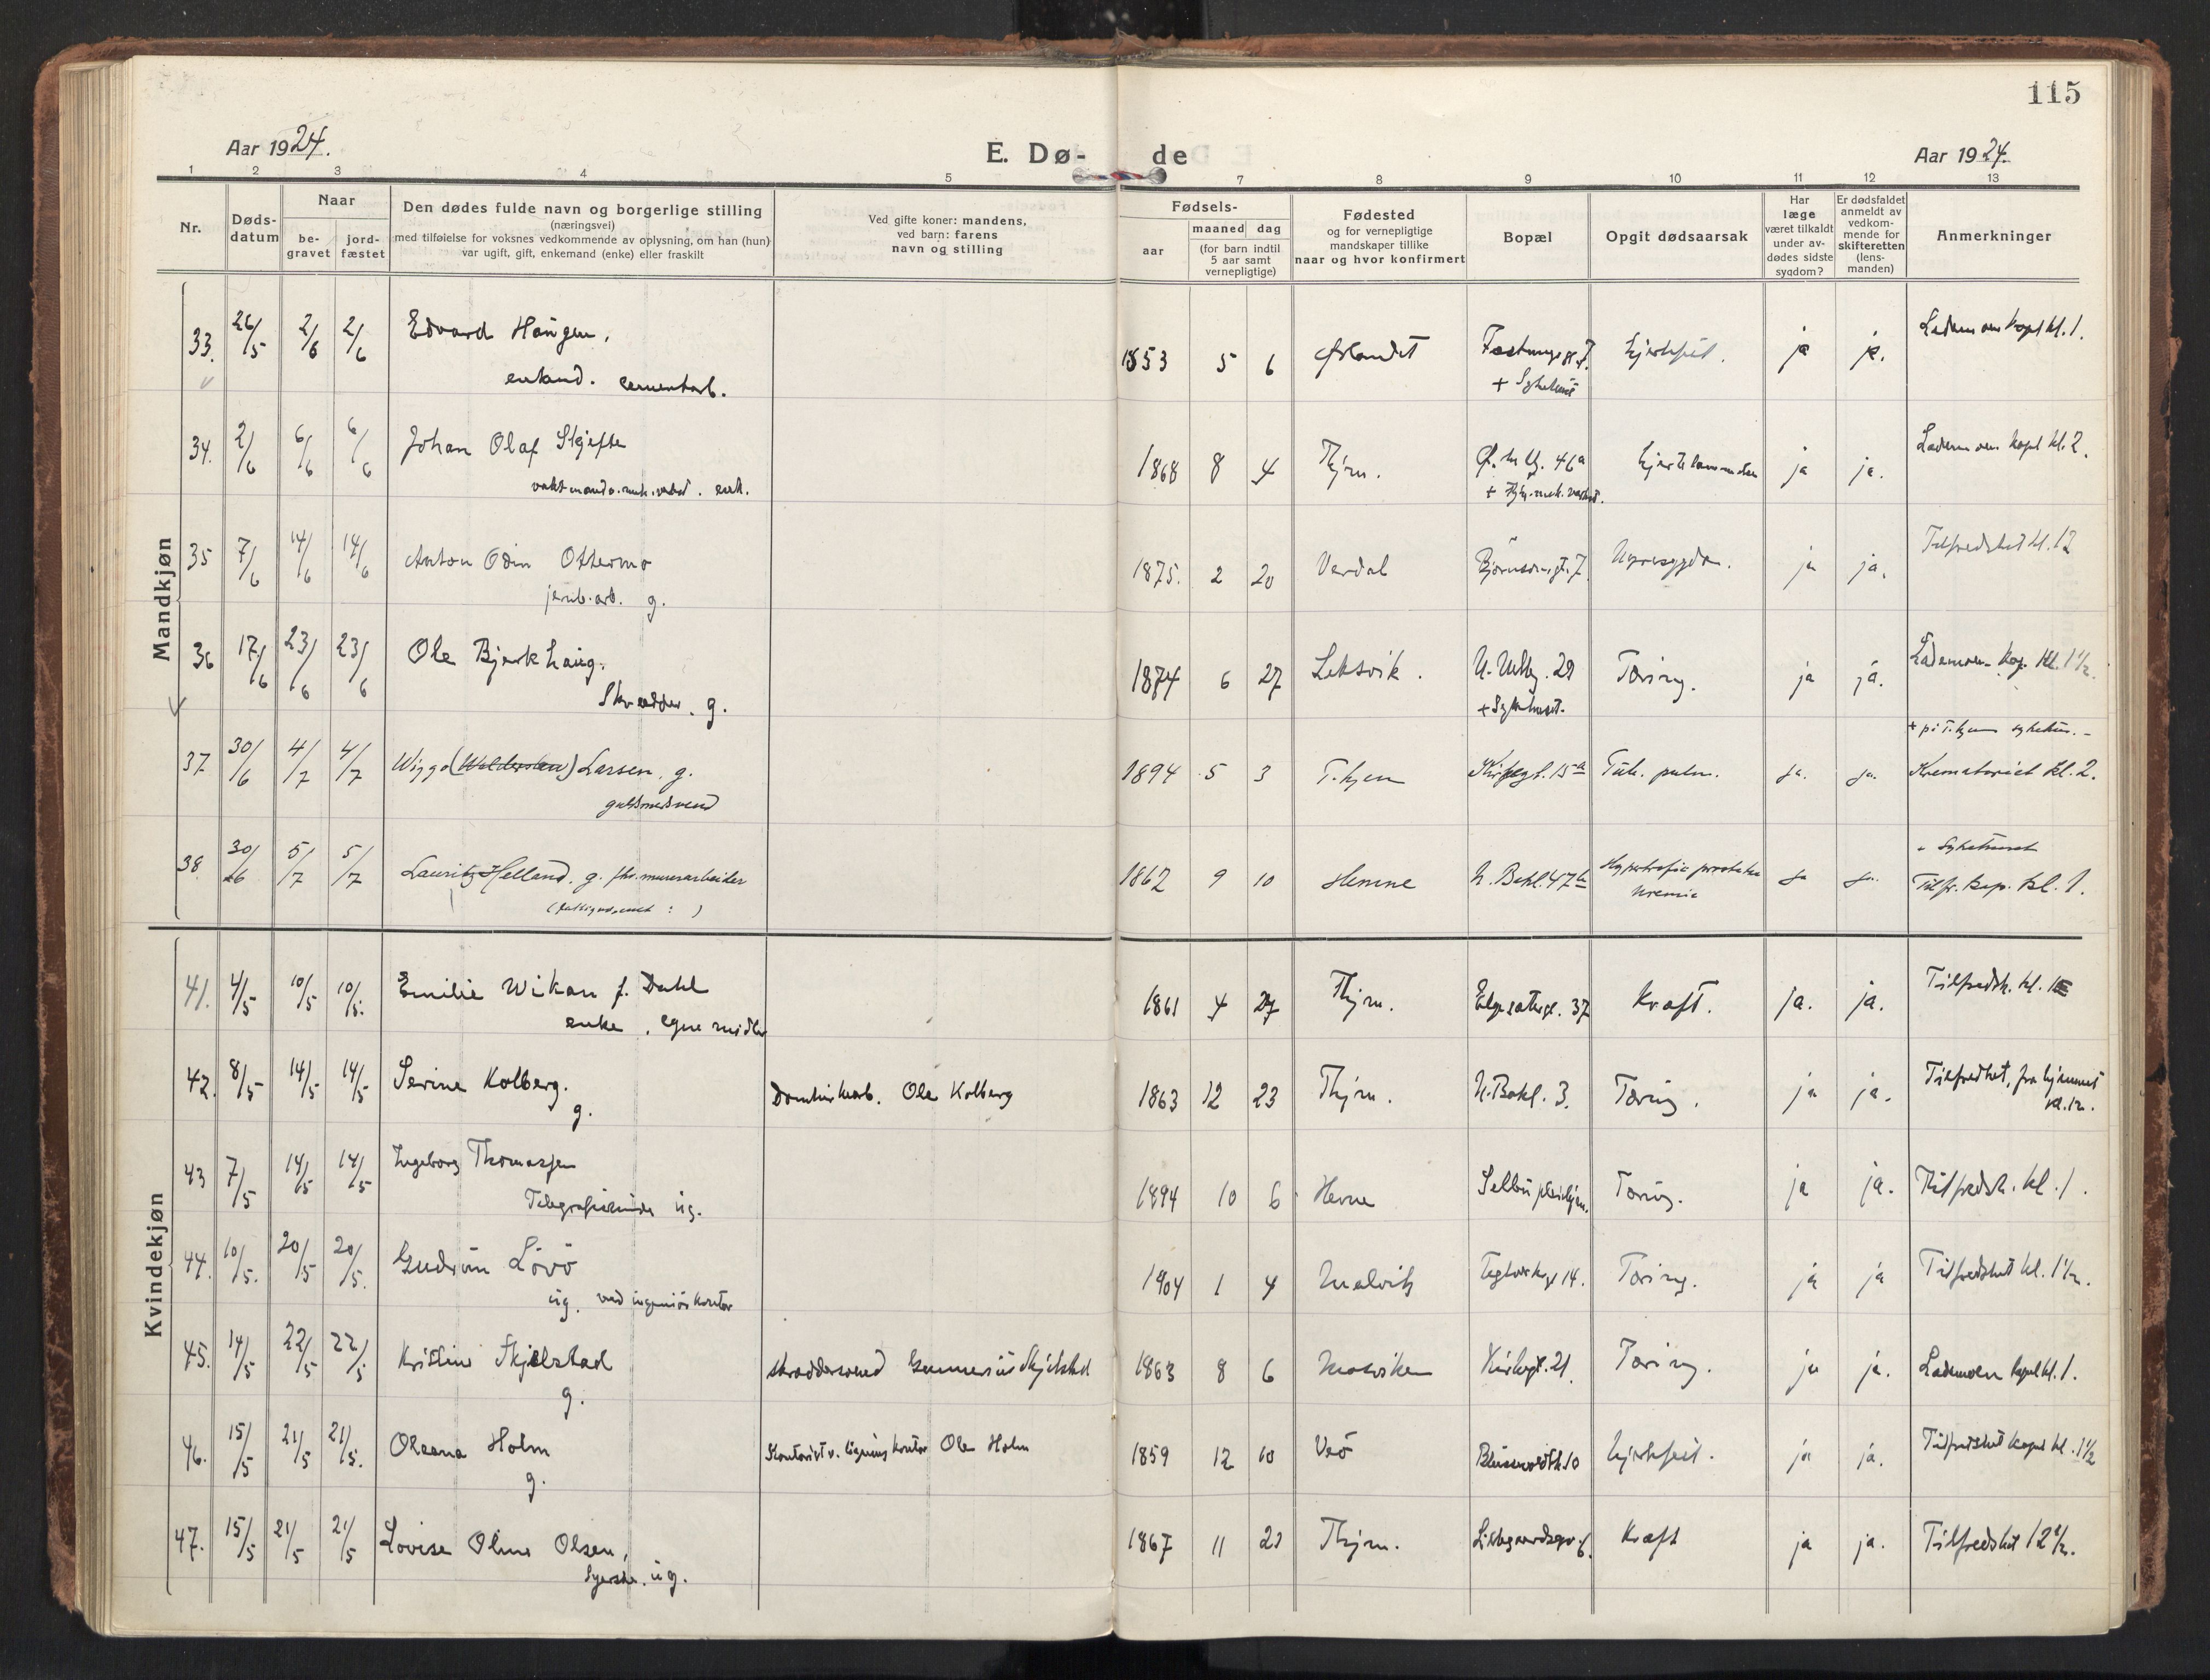 115
Aar 1924.
E. Dø-
de
Aar 1924.
1 2 3 4 5 7 8 9 10 11 12 13
Nr.
Døds-
datum
Naar
be-
gravet
jord-
fæstet
Den dødes fulde navn og borgerlige stilling
(næringsvei)
med tilføielse for voksnes vedkommende av oplysning, om han (hun)
var ugift, gift, enkemand (enke) eller fraskilt
Ved gifte koner: mandens,
ved barn: farens
navn og stilling
Fødsels-
aar
maaned dag
(for barn indtil
5 aar samt
vernepligtige)
Fødested
og for vernepligtige
mandskaper tillike
naar og hvor konfirmert
Bopæl
Opgit dødsaarsak
Har
læge
været tilkaldt
under av-
dødes sidste
sygdom?
Er dødsfaldet
anmeldt av
vedkom-
mende for
skifteretten
(lens-
manden)
Anmerkninger
Mandkjøn
33. 26/5 2/6 2/6 Edvard Haugen, 1853 5 6 Ørlandet hjertefeil. ja ja. kapel kl. 1.
enkemd. cementarb. + Sykehuset
34. 2/6 6/6 6/6 Johan Olaf Skjefte 1868 8 4 Thjm. 46a ja ja. Lademoen kapel kl. 2.
35 7/6 14/6 14/6 Anton Odin Ottermo 1875. 2 20 Verdal Bjørnsonsgt. 7. Nyresygdom. ja ja. Tilfredshet kl. 12
jernb.arb. g.
36 17/6 23/6 23/6 Ole Bjerkhaug. 1874 6 27 Leksvik. 29 Tæring. ja ja. Lademoen kap. kl. 1 1/2.
Skrædder. g. + Sykehuset.
37 30/6 4/7 4/7 Wiggo Larsen. g. 1894 5 3 T.hjem Kirkegt. 15a Tub. pulm. ja. ja. Krematoriet kl. 2.
guldsmedsvend
38 30/6 5/7 5/7 Lauritz Helland. g. fhv. murerarbeider 1862 9 10 Hemne N. Bakl. 47b Hypertrofia prostatae ja ja. Tilfr. kap. kl. 1.
Uremia
Kvindekjøn
41. 4/5 10/5 10/5. Emilie Wikan f. Dahl 1861 4 27 Thjm. 37 Kræft. ja. ja. Tilfredsh. kl.
enke, egne midler
42. 8/5 14/5 14/5 Serine Kolberg. Ole Kolberg 1863 12 23 Thjm. N. Bakl. 3. Tæring. ja ja. Tilfredshet, fra hjemmet
g. kl. 12.
43 7/5 14/5 14/5 Ingeborg Thomassen 1894 10 6 Hevne Selbu pleiehjem. Tæring. ja ja. Tilfredsh. kl. 1.
Telegrafistinde ug.
44. 10/5. 20/5 20/5. Gudrun Lövö 1904 1 4 Malvik 14. Tæring. ja ja Tilfredshet kl. 1 1/2.
ug. ved ingeniörkontor
45. 14/5 22/5 22/5 Kristine Skjelstad skræddersvend Gunnerius Skjelstad 1863 8 6 Mosviken Kirkegt. 21. Tæring. ja ja. Lademoen kapel kl. 1.
g.
46. 15/5 21/5 21/5. Oleana Holm Kontorist v. ligningskontor Ole Holm 1859 12 10 Veö 10 hjertefeil. ja ja. Tilfredshet kapel kl. 1 1/2
g.
47. 15/5 21/5 21/5 Lovise Oline Olsen, 1867 11 23 Thjm. 6. Kræft ja ja. Tilfredshet 12 1/2.
Syerske. ug.